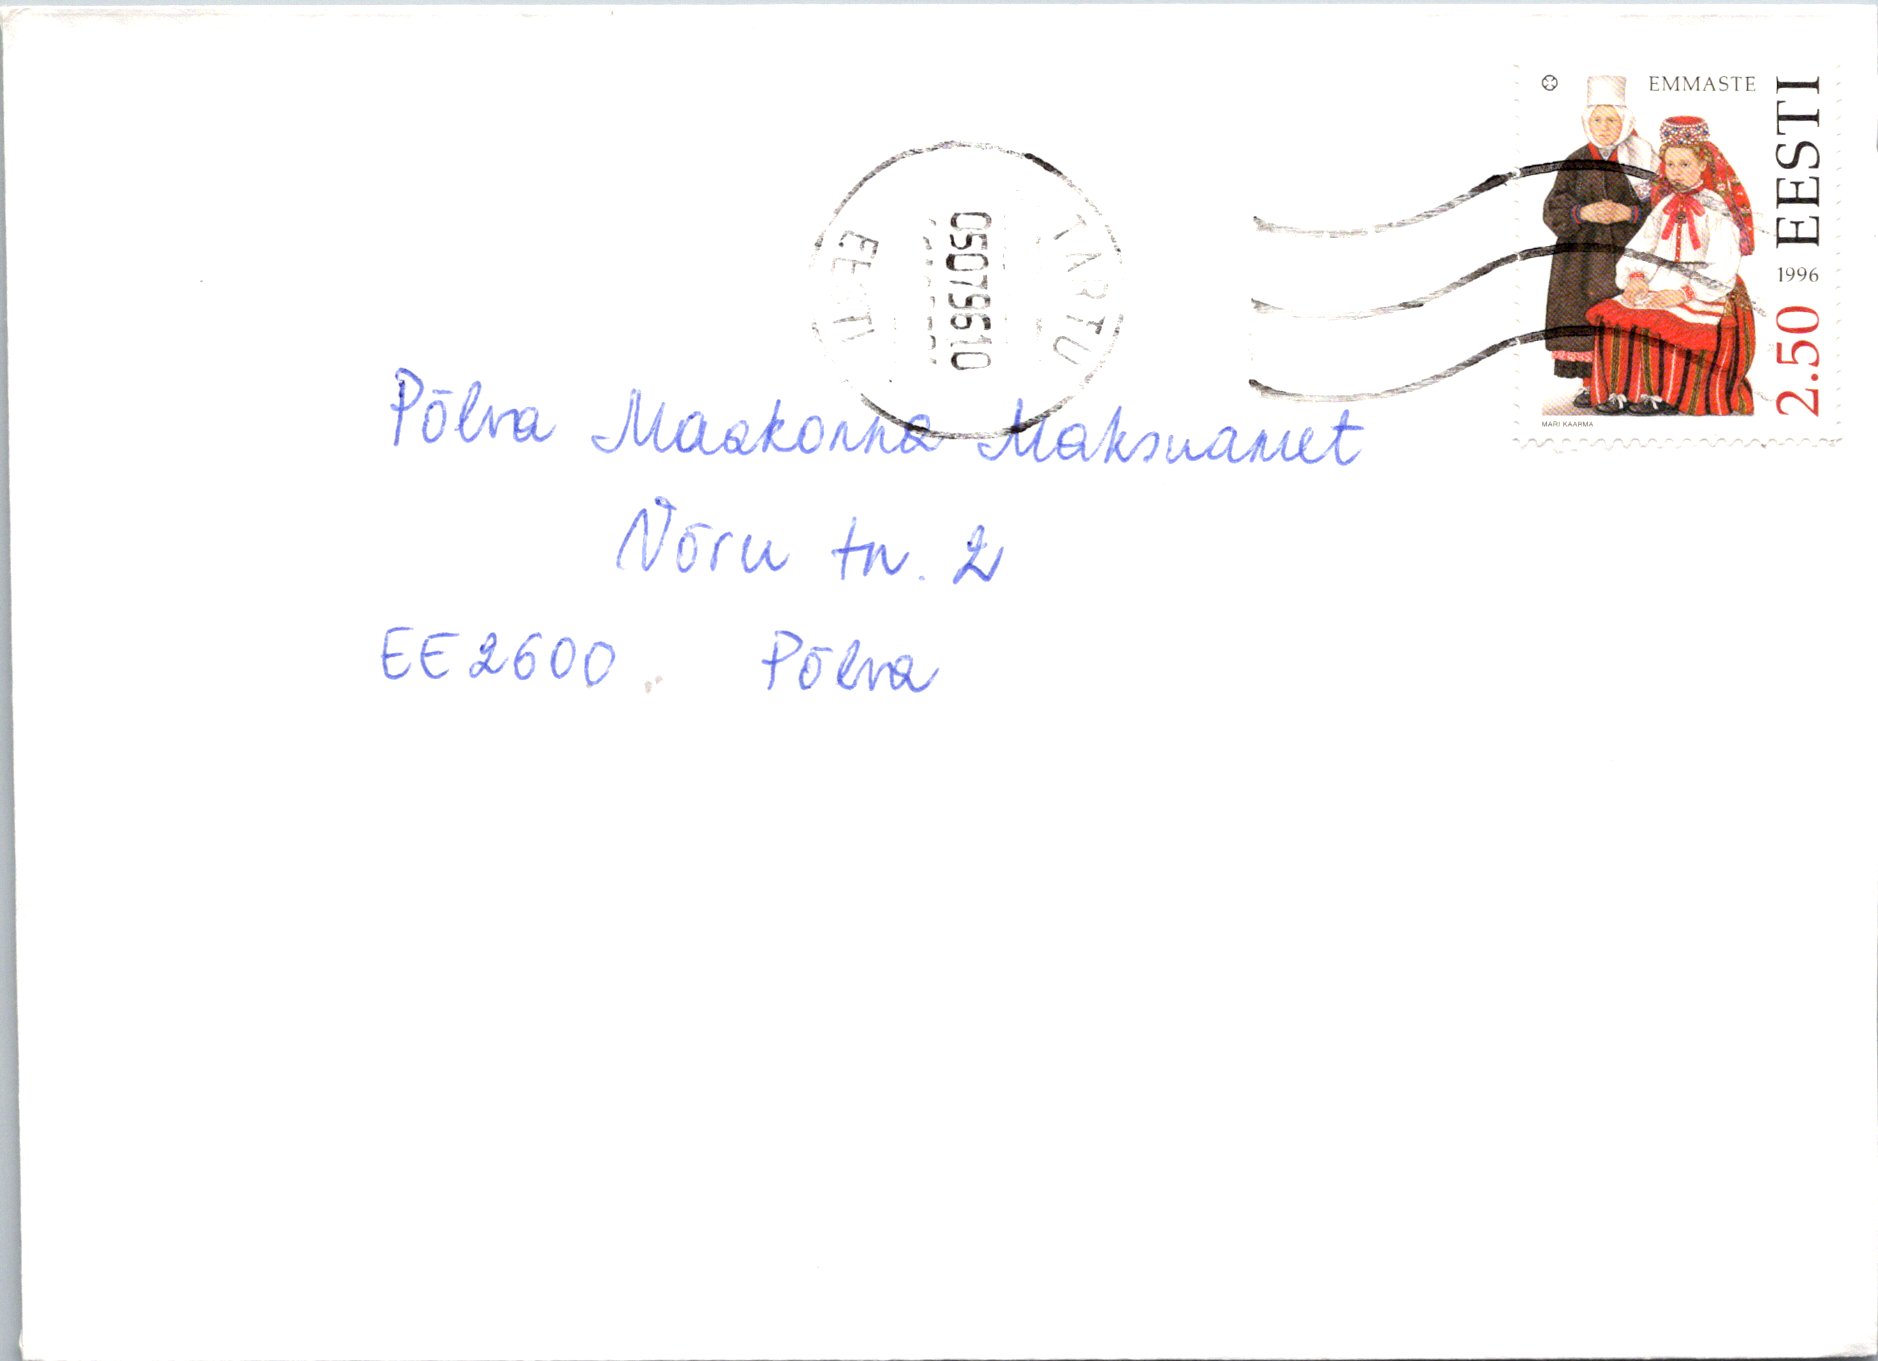 EMMASTE
EESTI
1996
2.50
MARI KAARMA
TARTU
05079610
EESTI
Põlva Maakonna Maksuamet
Võru tn. 2
EE2600 Põlva